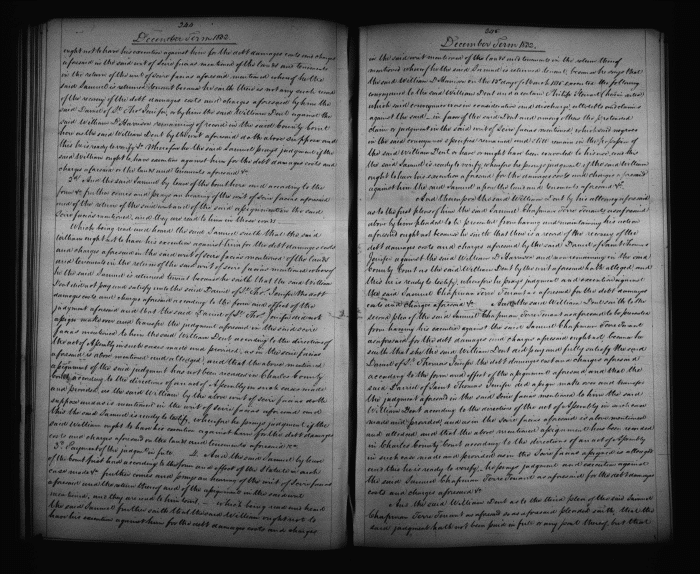 244
December Term 1832.
ought not to have his execution against him for the debt damages costs and charges
aforesaid in the said writ of Scire facias mentioned of the lands and tenements
in the return of the writ of Scire facias aforesaid mentioned whereof he the
said Samuel is returned tenant because he saith there is not any such record
of the recovery of the debt damages costs and charges aforesaid by him the
said Daniel of St. Thos. Jenifer, a by him the said William Dent against the
said William D. Harrison remaining of record in the said County Court
here as the said William Dent by the writ aforesaid doth above suppose and
this he is ready to verify &c. Wherefore he the said Samuel prays judgment if the
said William ought to have execution against him for the debt damages costs and
charges aforesaid on the lands and tenements aforesaid &c
2d. And the said Samuel by leave of the Court here and according to the
form &c further comes and prays an hearing of the writ of Scire facias aforesaid
and of the return of the said writ and of the said assignment in the said
Scire facias mentioned, and they are read to him in these words
Which being read and heard the said Samuel saith that the said
William ought not to have his execution against him for the debt damages costs
and charges aforesaid in the said writ of Scire facias mentioned of the lands
and tenements in the return of the said writ of Scire facias mentioned whereof
he the said Samuel is returned tenant because he saith that the said William
Dent did not pay and satisfy unto the said Daniel of St. Thos. Jenifer the debt
damages costs and charges aforesaid according to the form and effect of the
judgment aforesaid and that the said Daniel of St. Thos. Jenifer did not
assign make over and transfer the judgment aforesaid in the said Scire
facias mentioned to him the said William Dent according to the directions of
the act of Assembly in such cases made and provided, as in the Scire facias
aforesaid is above mentioned and alledged, and that the above mention'd
assignment of the said judgment has not been recorded in Charles County
Court according to the directions of an act of Assembly in such cases made
and provided, as the said William by the above writ of Scire facias doth
suppose and as is mentioned in the writ of Scire facias aforesaid and
this the said Samuel is ready to verify, wherefore he prays judgment if the
said William ought to have his execution against him for the debt damages
costs and charges aforesaid on the lands and tenements aforesaid &c
3d. Payment of the judgmt in full. 4. And the said Samuel by leave
of the Court first had according to the form and effect of the Statute in such
case made &c further comes and prays an hearing of the writ of Scire facias
aforesaid and the return thereof and of the assignment in the said writ
mentioned, and they are read to him (viz) which being read and heard
the said Samuel further saith that the said William ought not to
have his execution against him for the debt damages costs and charges
245
December Term 1832.
in the said writ mentioned of the lands and tenements in the return thereof
mentioned whereof he the said Samuel is returned tenant because he says that
the said William D. Harrison on the 13th day of March 18 executed the following
conveyance to the said William Dent and a certain Philip Stewart
which said conveyance was in consideration and discharge
against the said in favor of the said Dent and among others the pretended
claim or judgment in the said writ of Scire facias mentioned which said negroes
in the said conveyance specified remained and still remain in the possession of
the said William Dent a have or ought to have been converted to his own use this
the said Samuel is ready to verify, wherefore he prays judgment if the said William
ought to have his execution aforesaid for the damages costs and charges aforesaid
against him the said Samuel upon the lands and tenements aforesaid &c.
And thereupon the said William Dent by his attorney aforesaid
as to the first plea of him the said Samuel Chapman Terre Tenant as aforesaid
above by him pleaded to be precluded from having and maintaining his action
aforesaid ought not because he saith that there is a record of the recovery of the
debt damages costs and charges aforesaid by the said Daniel of Saint Thomas
Jenifer against the said William D. Harrison and now remaining in the said
County Court as the said William Dent by the writ aforesaid hath alleged, and
this he is ready to testify, wherefore he prays judgment and execution against
the said Samuel Chapman Terre Tenant as aforesaid for the debt damages
costs and charges aforesaid &c And the said William Dent saith to the
second plea of the said Samuel Chapman Terre Tenant as aforesaid to be precluded
from having his execution against the said Samuel Chapman Terre Tenant
as aforesaid for the debt damages and charges aforesaid ought not because he
saith that he the said William Dent did pay and fully satisfy the said
Daniel of St. Thomas Jenifer the debt damages costs and charges aforesaid
according to the form and effect of the judgment aforesaid and that the
said Daniel of Saint Thomas Jenifer did assign make over and transfer
the judgment aforesaid in the said Scire facias mentioned to him the said
William Dent according to the direction of the act of Assembly in such case
made and provided, and as in the Scire facias aforesaid is above mentioned
and alledged and that the above mentioned assignment has been recorded
in Charles County Court according to the direction of an act of Assembly
in such case made and provided as in the Scire facias aforesaid is alledged
and this he is ready to verify, he prays judgment and execution against
the said Samuel Chapman Terre Tenant as aforesaid for the debt damages
costs and charges aforesaid &c
And the said William Dent as to the third plea of the said Samuel
Chapman Terre Tenant as aforesaid so as aforesaid pleaded saith that the
said judgment hath not been paid in full or any part thereof, but that